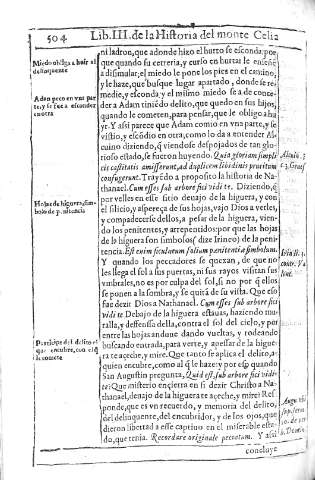 504 Lib. III. de la Historia del monte Celia
Miedo obliga a huir al
delinquente
Adan peco en vna par
te, y se fue a esconder
en otra
Hojas de higuera, sim
bolo de penitencia
Participe del delito es
el encubre, con el
lo comete
ni ladron, que adonde hizo el hurto se esconda: por
que quando su cetreria, y curso en hurtar le enseñe
a disimular, el miedo le pone los pies en el camino,
y le haze, que busque lugar apartado, donde se re-
medie, y esconda, y el mismo miedo se a de conce-
der a Adam tiniedo delito, que quedo en sus hijos,
quando le cometen, para pensar, que le obligo a hu
yr. Y assi parece que Adam comio en vna parte, y se
vistio, y escódio en otra, como lo da a entender
cuino diziendo, q́ viendose despojados de tan glo-
rioso estado, se fueron huyendo. Quia gloriam simpli
cis castitatis amisserunt, ad duplicem libidinis pruritum
confugerunt. Trayédo a proposito la historia de Na-
thanael. Cum esses sub arbore fici vidi te. Diziendo, q́
por velles en esse sitio debajo de la higuera, y con
el silicio, y aspereça de sus hojas, vajo Dios a verles,
y compadecerse dellos, a pesar de la higuera, vien-
do los penitentes, y arrepentidos: por que las hojas
de la higuera son simbolos (dize Irineo) de la peni-
tencia. Est enim ficulneum folium penitentiæ simbolum.
Y quando los peccadores se quexan, de que no
les llega el sol a sus puertas, ni sus rayos visitan sus
vmbrales, no es por culpa del sol, si no por q́ ellos
se ponen a la sombra, y se quitá de su vista. Que esso
fue dezir Dios a Nathanael. Cum esses sub arbore fici
vidi te Debajo de la higuera estauas, haziendo mu-
ralla, y deffensa della, contra el sol del cielo, y por
entre las hojas anduue dando vueltas, y rodeando
buscando entrada, para verte, y apessar de la higue
ra te açeche, y mire. Que tanto se aplica el delito, a
quien encubre, como al q́ le haze: y por esso quando
San Augustin pregunta, Quid est, sub arbore fici vidi
te: Que misterio encierra en si dezir Christo a Na-
thanael, denajo de la higuera te açeche, y mire: Res
ponde, que es vn recuerdo, y memoria del delito,
del delinquente, del encubridor, y de los ojos, que
dieron libertad a esse captiuo en el miserable esta-
do, que tenia. Recordare originale peccatum. Y assi
concluye